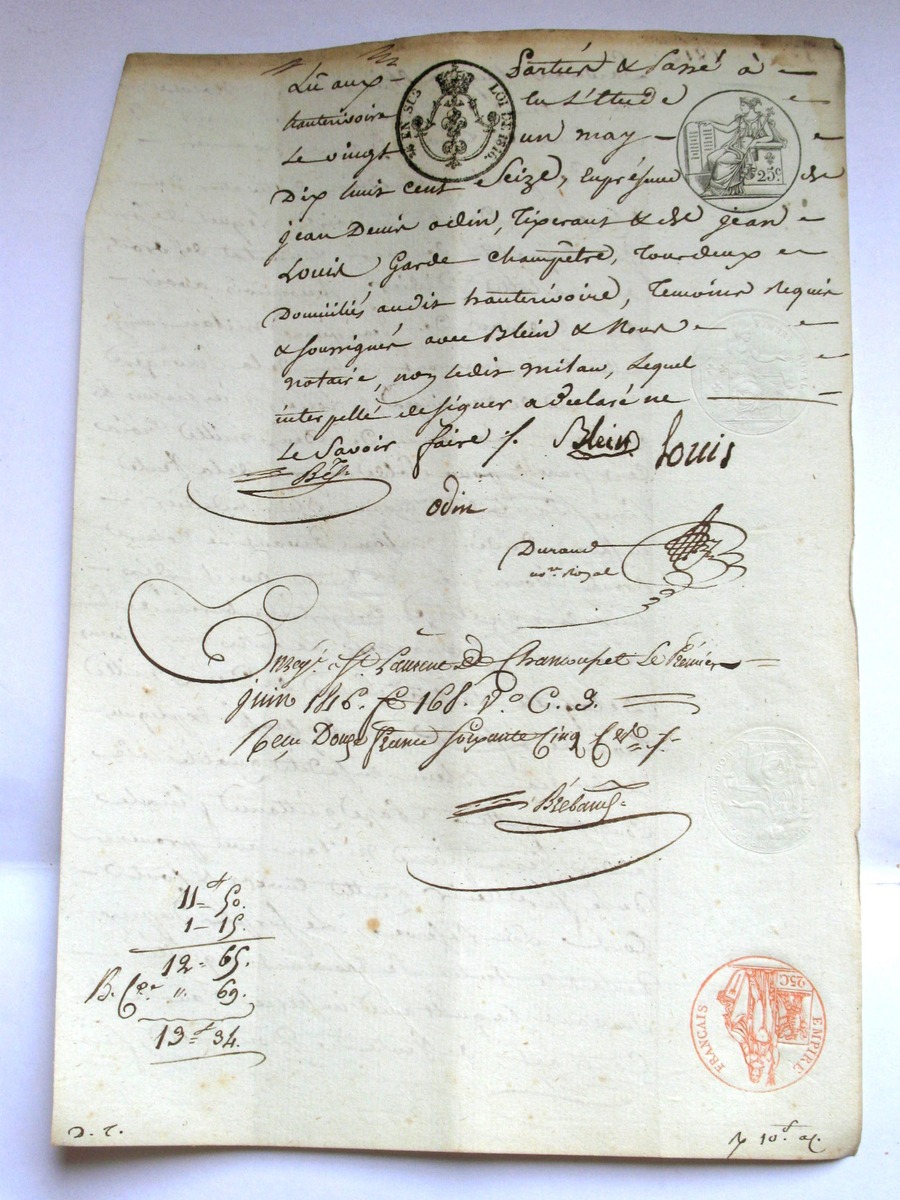 Lû aux Partiés & Passé à
hauterivoire en l'Etude
Le vingt un may
Dix huit cent Seize, En présence de
jean Denis odin, Tixerant & de jean
Louis Garde champêtre, Tous deux
Domiiliés audit hauterivoire, Temoins Requis
& soussignés avec Blein & Nous
notaire, non ledit milan, Lequel
interpellé de signer a Declaré ne
Le Savoir faire /.
EN SUS LOI DE 1816.
25c
Blein Louis
odin
Durand
nore Royal
Enregé à St Laurent De Chamousset Le Premier
juin 1816. fo 168. Vo C. 3.
Reçu Douze francs soixante Cinq
11 = 50.
1 - 15.
12 = 65.
69.
13 = 34.
FRANCAIS EMPIRE
25C
D. T.